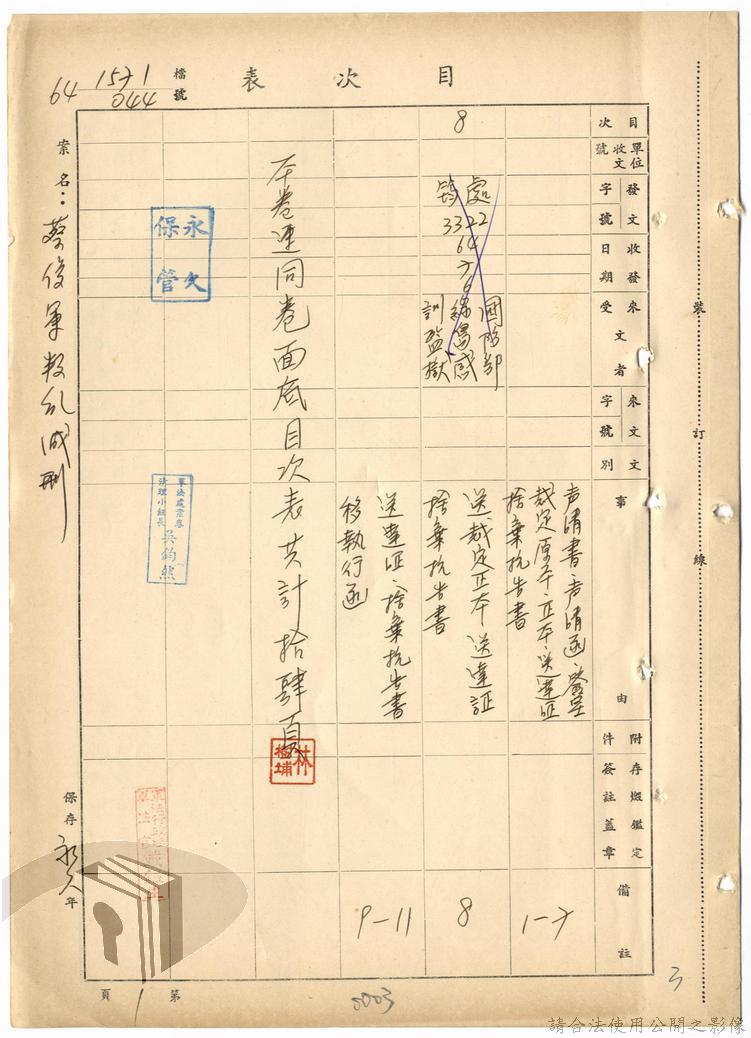 目次表
檔號
1571
64
044
案名：蔡俊軍叛乱減刑
保存永久年
目次
單位收文號
發文字號
收發日期
來文受文者
來文字號
文別
事由
附件
存燬鑑定簽註蓋章
備註
声請書、声請函、簽呈
裁定原本、正本、送達証
捨棄抗告書
1-7
8
處
3322
64
國防部
綠島感
訓監獄
送裁定正本 送達証
捨棄抗告書
8
送達証、捨棄抗告書
移執行函
9-11
本卷連同卷面底目次表共計拾肆頁
林
埔
永久保管
軍法處檔卷
清理小組長 吳鈞然
裝訂線
第1頁
0003
3
請合法使用公開之影像